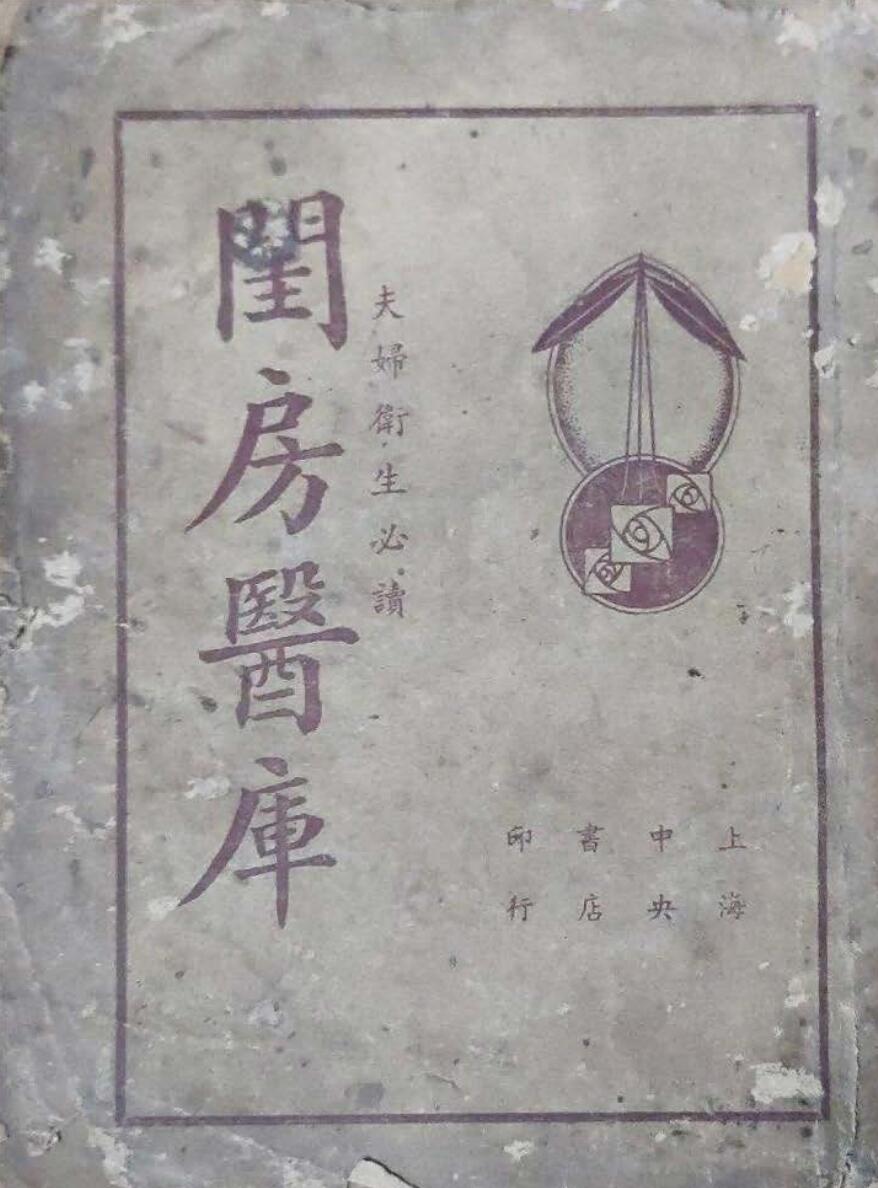 上海
中央
書店
印行
夫婦衛生必讀
閨房醫庫